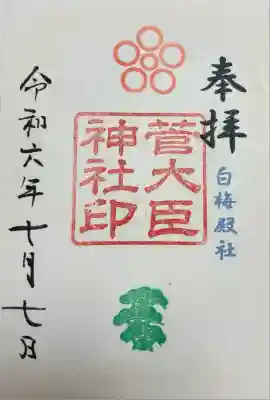 奉拝
白梅殿社
菅大臣
神社印
令和六年十月七日